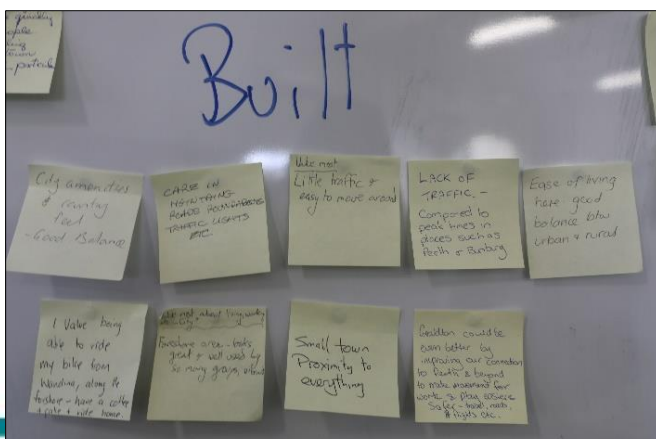 people
Built
City amenities
& country
feel
- Good Balance
CARE IN
MAINTAING
ROADS ROUNDABOUTS
TRAFFIC LIGHTS
ETC.
Like most
Little traffic &
easy to move around
LACK OF
TRAFFIC. -
Compared to
peak times in
places such as
Perth & Bunbury
Ease of living
here good
balance btw
urban & rural
I Value being
able to ride
my bike from
Wandina, along the
foreshore - have a coffee
+ ride home.
about living/working
City
Foreshore area - looks
great & well used by
so many groups,
Small town
Proximity to
everything
Geraldton could be
even better by
improving our connection
to Perth & beyond
to make movement for
work & play easier
Safer - roads,
flights etc.